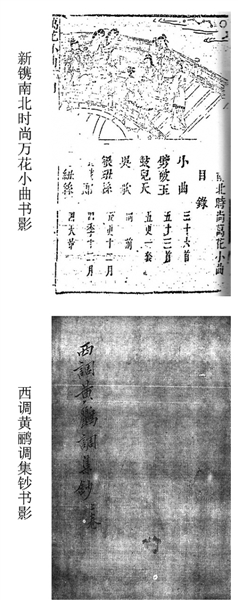 新镌南北时尚万花小曲书影
北時尚萬花小曲
目錄
小曲 三十六首
劈破玉 五十三首
鼓兒天 五更一套
吴歌
銀紐絲 五更十二月
十二月
紐絲
西调黄鹂调集钞书影
西調黄鸝調集鈔